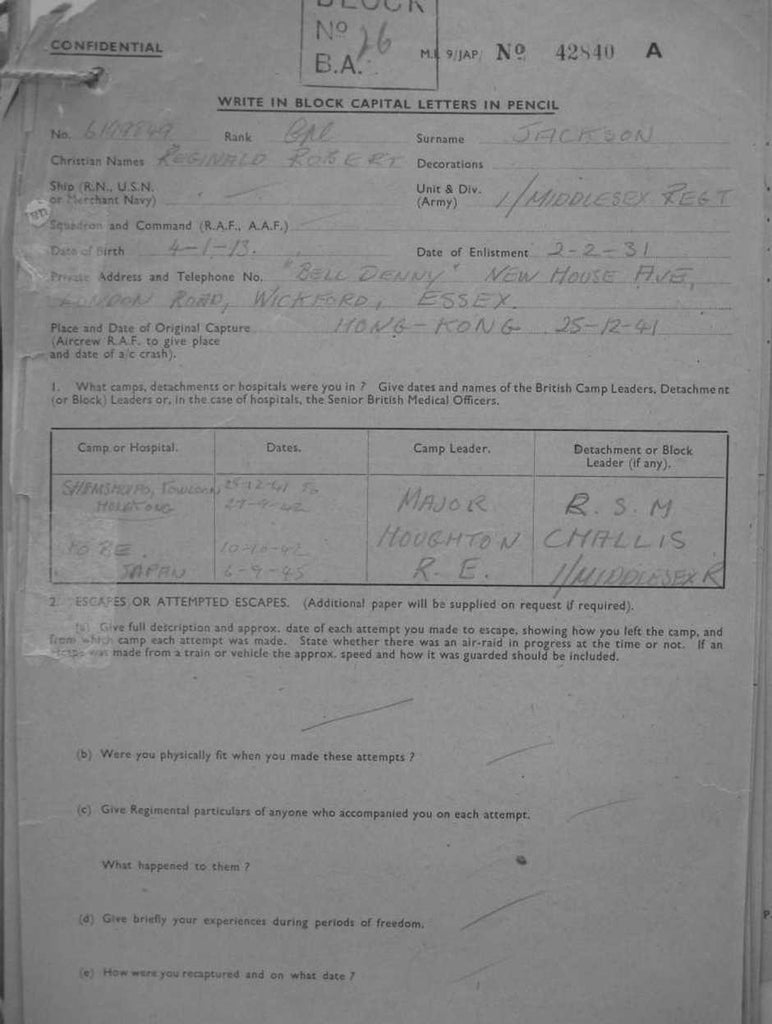 BLOCK
No 26
B.A.
CONFIDENTIAL
M.I. 9/JAP/ No 42840 A
WRITE IN BLOCK CAPITAL LETTERS IN PENCIL
No. Rank Cpl Surname JACKSON
Christian Names REGINALD ROBERT Decorations
Ship (R.N., U.S.N. or Merchant Navy)
Unit & Div. (Army) 1/MIDDLESEX REGT
Squadron and Command (R.A.F., A.A.F.)
Date of Birth 4-1-13. Date of Enlistment 2-2-31
Private Address and Telephone No. "BELL DENNY" NEW HOUSE AVE,
LONDON ROAD, WICKFORD, ESSEX.
Place and Date of Original Capture HONG-KONG 25-12-41
(Aircrew R.A.F. to give place
and date of a/c crash).
1. What camps, detachments or hospitals were you in ? Give dates and names of the British Camp Leaders, Detachment
(or Block) Leaders or, in the case of hospitals, the Senior British Medical Officers.
Camp or Hospital. Dates. Camp Leader. Detachment or Block
Leader (if any).
25-12-41 To MAJOR R.S.M
HONGKONG 27-9-42
KOBE. 10-10-42 HOUGHTON CHALLIS
JAPAN 6-9-45 R.E. 1/MIDDLESEX R
2. ESCAPES OR ATTEMPTED ESCAPES. (Additional paper will be supplied on request if required).
(a) Give full description and approx. date of each attempt you made to escape, showing how you left the camp, and
from which camp each attempt was made. State whether there was an air-raid in progress at the time or not. If an
escape was made from a train or vehicle the approx. speed and how it was guarded should be included.
(b) Were you physically fit when you made these attempts ?
(c) Give Regimental particulars of anyone who accompanied you on each attempt.
What happened to them ?
(d) Give briefly your experiences during periods of freedom.
(e) How were you recaptured and on what date ?